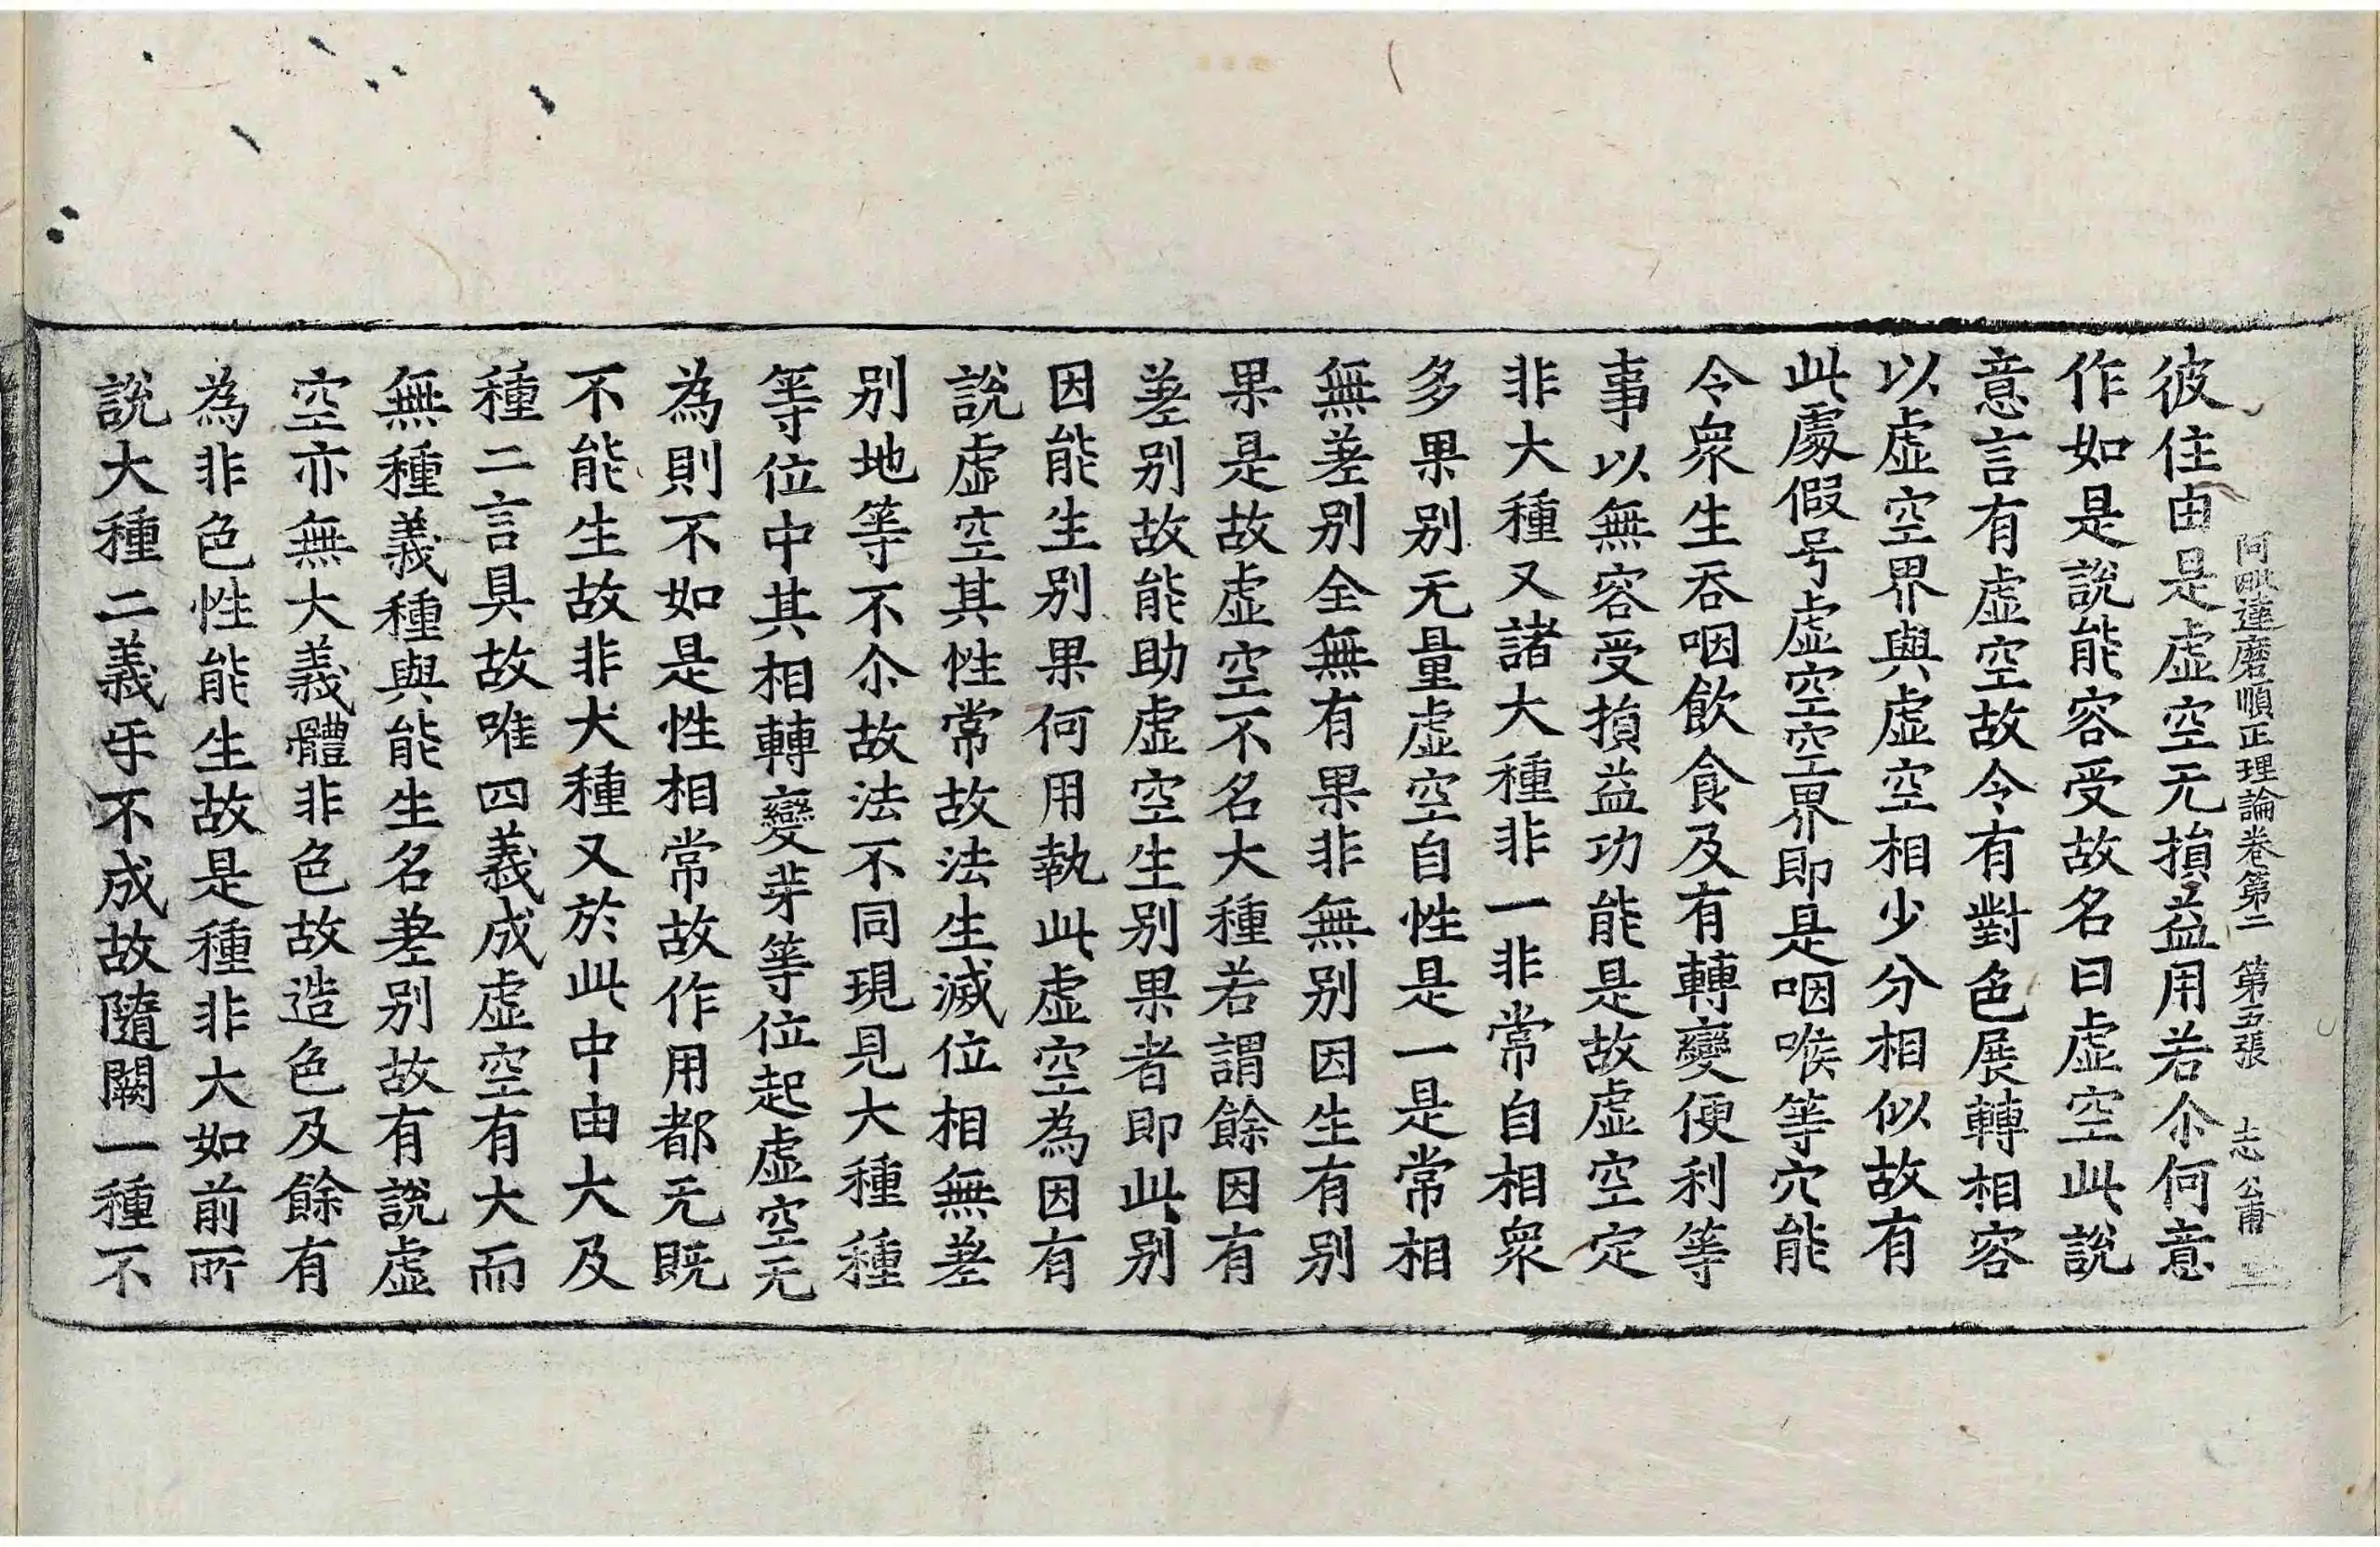 阿毗達磨順正理論卷第二 第五張 志 公甫
彼住由是虛空无損益用若尒何意
作如是說能容受故名曰虛空此說
意言有虛空故令有對色展轉相容
以虛空界與虛空相少分相似故有
此處假号虛空空界即是咽喉等穴能
令衆生吞咽飲食及有轉變便利等
事以無容受損益功能是故虛空定
非大種又諸大種非一非常自相衆
多果別无量虛空自性是一是常相
無差別全無有果非無別因生有別
果是故虛空不名大種若謂餘因有
差別故能助虛空生別果者即此別
因能生別果何用執此虛空為因有
說虛空其性常故法生滅位相無差
別地等不尒故法不同現見大種種
等位中其相轉變芽等位起虛空无
為則不如是性相常故作用都无既
不能生故非大種又於此中由大及
種二言具故唯四義成虛空有大而
無種義種與能生名差別故有說虛
空亦無大義體非色故造色及餘有
為非色性能生故是種非大如前所
說大種二義乎不成故隨闕一種不